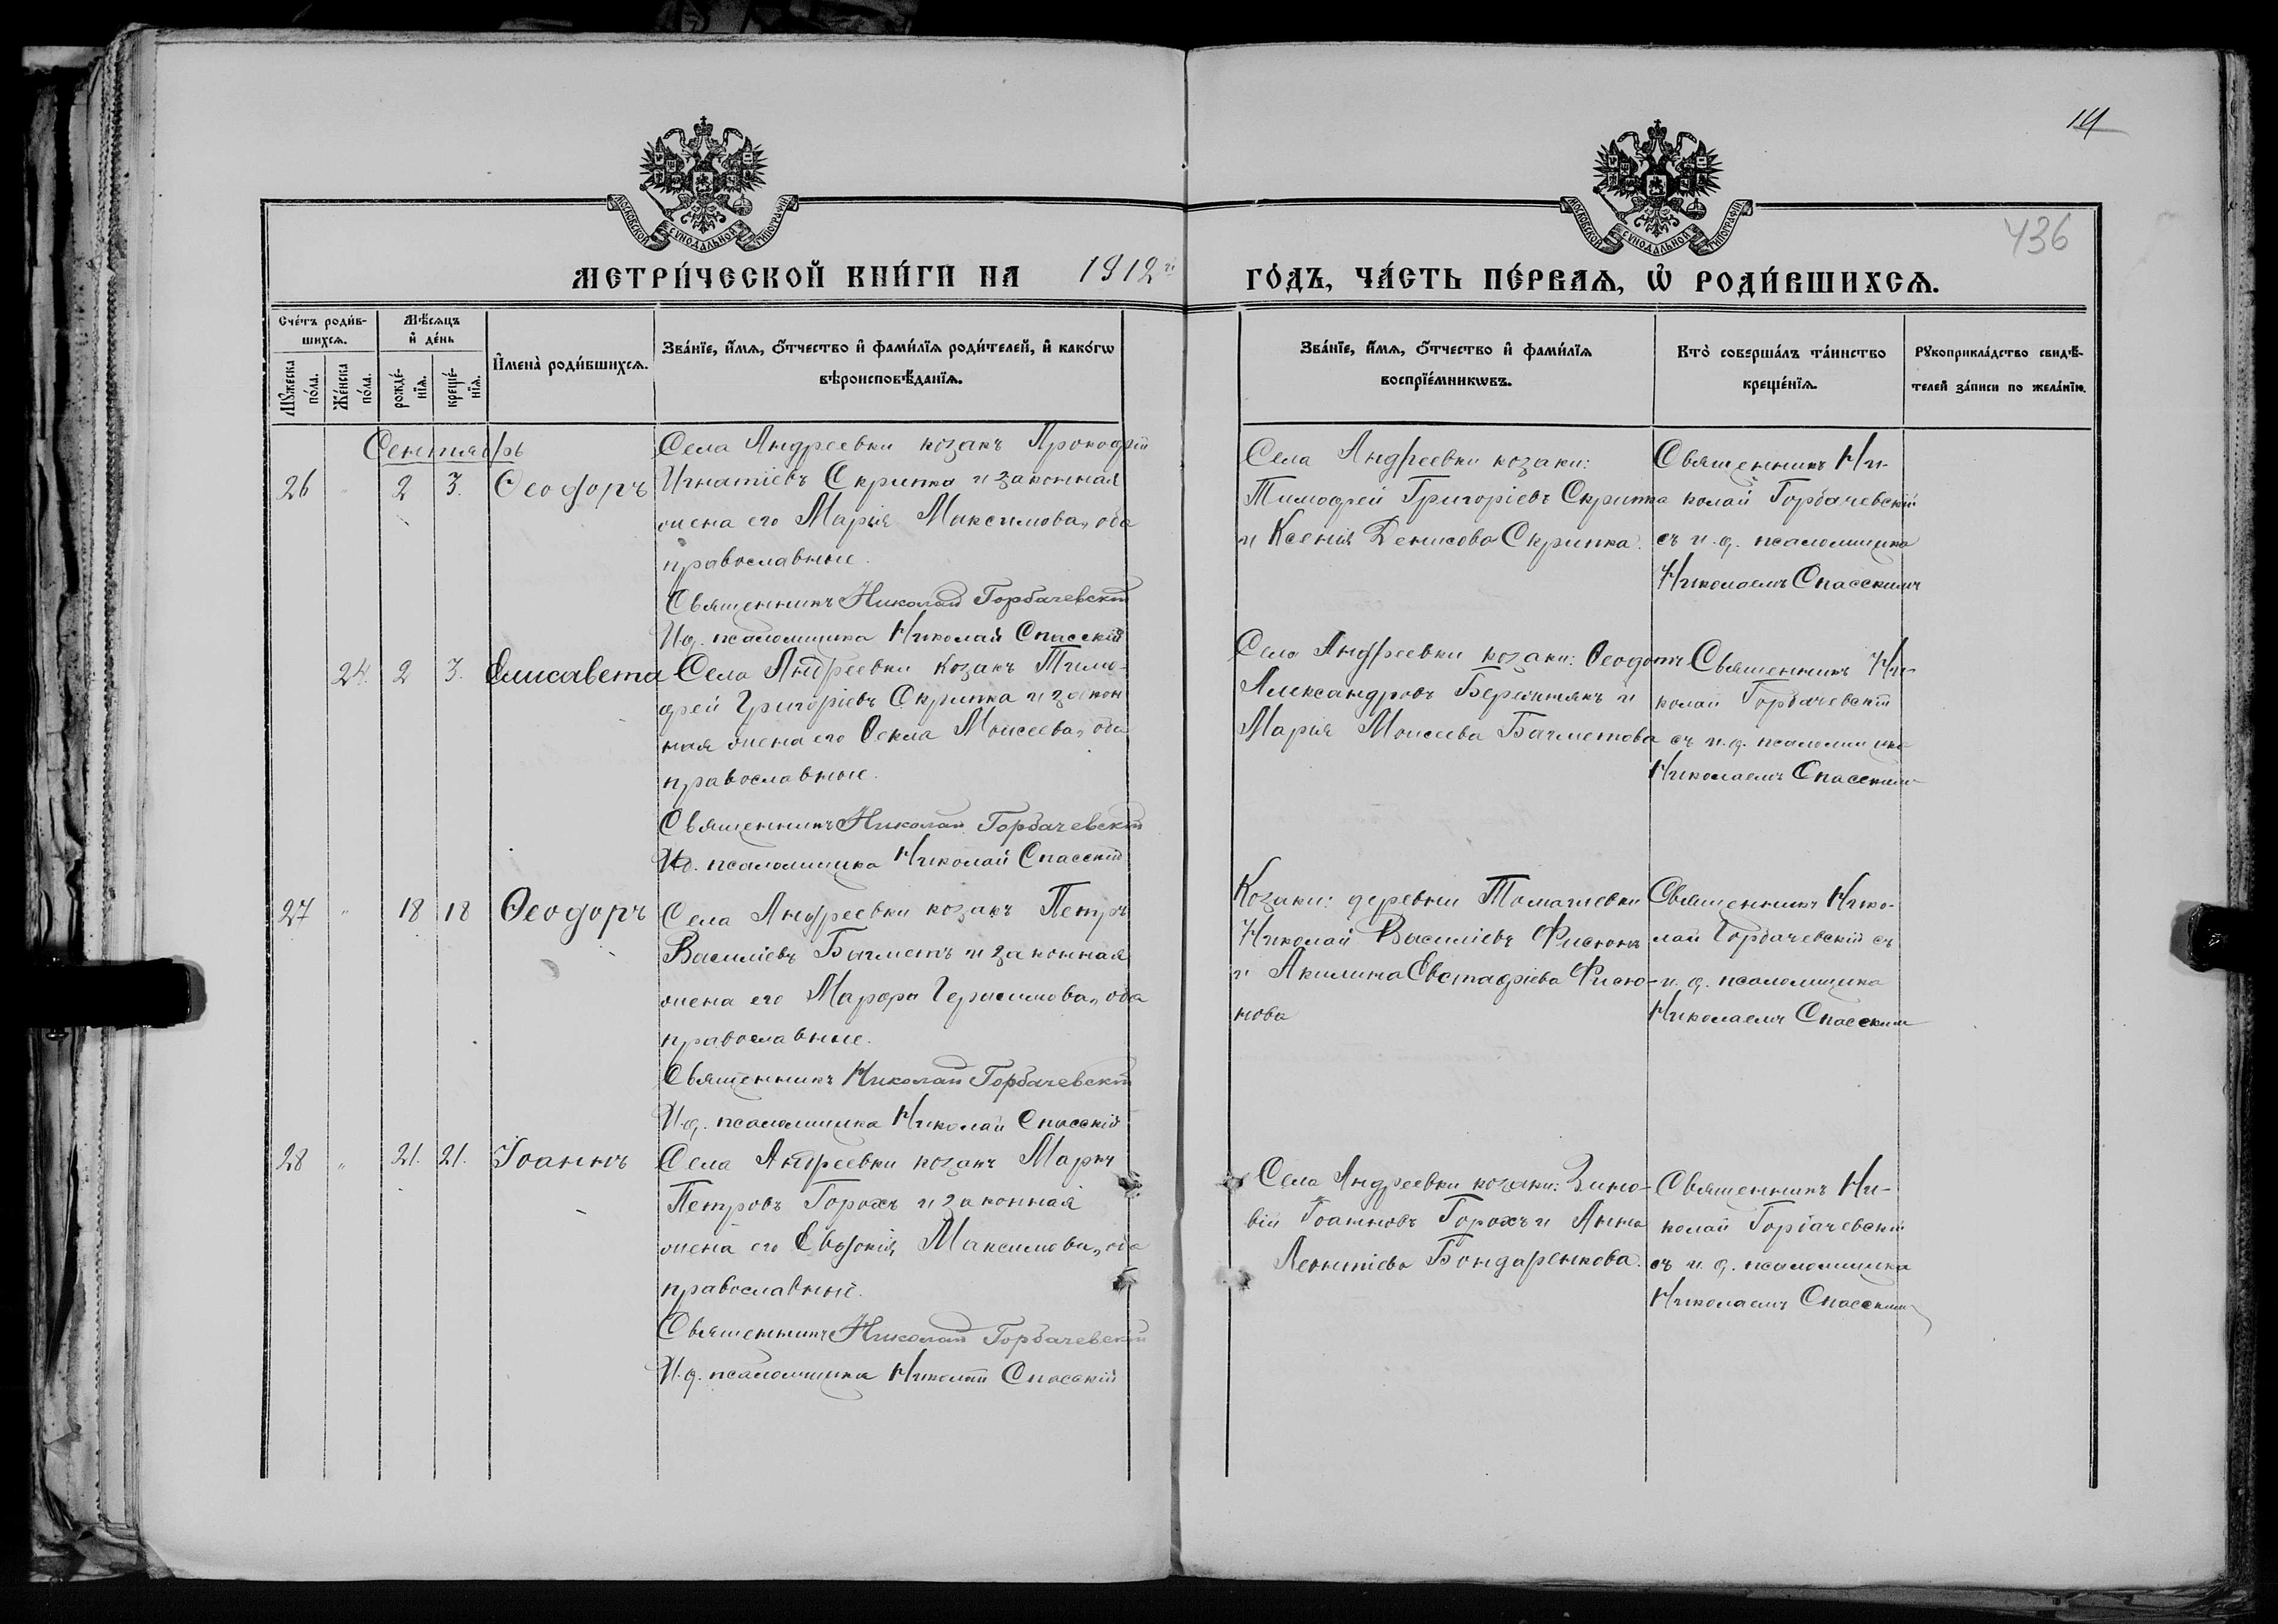 14
436
МОСКОВСКОЙ СѴНОДАЛЬНОЙ ТИПОГРАФІИ
МОСКОВСКОЙ СѴНОДАЛЬНОЙ ТИПОГРАФІИ
МЕТРИ́ЧЕСКОЙ КНИ́ГИ НА 1912 й ГО́ДЪ, ЧА́СТЬ ПЕ́РВАѦ, Ѡ҆ РОДИ́ВШИХСѦ.
Сче́тъ роди́в-
шихсѧ.
Мꙋ́жеска по́ла.
Же́нска по́ла.
Мѣ́сѧцъ
и҆ де́нь
рожде́-нїѧ.
креще́-нїѧ.
И҆мена̀ роди́вшихсѧ.
Зва́нїе, и҆́мѧ, ѻ҆́тчество и҆ фами́лїѧ роди́телей, и҆ како́гѡ
вѣроисповѣ́данїѧ.
Зва́нїе, и҆́мѧ, ѻ҆́тчество и҆ фами́лїѧ
воспрїе́мникѡвъ.
Кто̀ соверша́лъ та́инство
креще́нїѧ.
Рꙋкоприкла́дство свидѣ́-
телей за́писи по жела́нїю.
Сентябрь
26 " 2 3. Ѳеодоръ
Села Андреевки козакъ Прокофій
Игнатіевъ Скрипка и законная
жена его Марія Максимова, оба
православные.
Священникъ Николай Горбачевскій
И.д. псаломщика Николай Спасскій
Села Андреевки козаки:
Тимофей Григоріевъ Скрипка
и Ксенія Денисова Скрипка.
Священникъ Ни-
колай Горбачевскій
съ и.д. псаломщика
Николаемъ Спасскимъ
24. 2 3. Елисавета
Села Андреевки козакъ Тимо-
фей Григоріевъ Скрипка и закон
ная жена его Ѳекла Моисеева, оба
православные.
Священникъ Николай Горбачевскій
И.д. псаломщика Николай Спасскій
Села Андреевки козаки: Ѳеодотъ
Александровъ и
Марія Моисеева Бачметова
Священникъ Ни-
колай Горбачевскій
съ и.д. псаломщика
Николаемъ Спасскимъ
27 " 18 18 Ѳеодоръ
Села Андреевки козакъ Петръ
Василіевъ Бачметъ и законная
жена его Марфа Герасимова, оба
православные.
Священникъ Николай Горбачевскій
И.д. псаломщика Николай Спасскій
Козаки: деревни Томашевки
Николай Василіевъ Фисюнъ
и Акилина Евстафіева Фисю-
нова
Священникъ Нико-
лай Горбачевскій съ
и.д. псаломщика
Николаемъ Спасскимъ
28 " 21. 21. Іоаннъ
Села Андреевки козакъ Маркъ
Петровъ Горохъ и законная
жена его Евдокія Максимова, оба
православные.
Священникъ Николай Горбачевскій
И.д. псаломщика Николай Спасскій
Села Андреевки козаки: Зино-
вій Іоанновъ Горохъ и Анна
Леонтіева Бондаренкова.
Священникъ Ни-
колай Горбачевскій
съ и.д. псаломщика
Николаемъ Спасскимъ